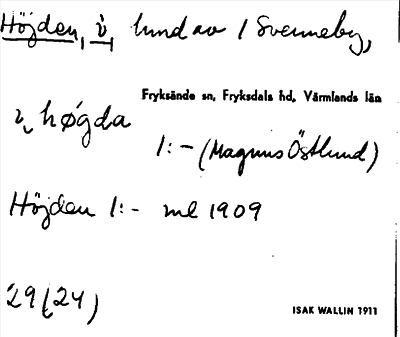 Höjden, i, lund av 1 Svenneby,
Fryksände sn, Fryksdals hd, Värmlands län
i, høgda
1:- (Magnus Östlund)
Höjden 1:- ml 1909
29(24)
ISAK WALLIN 1911